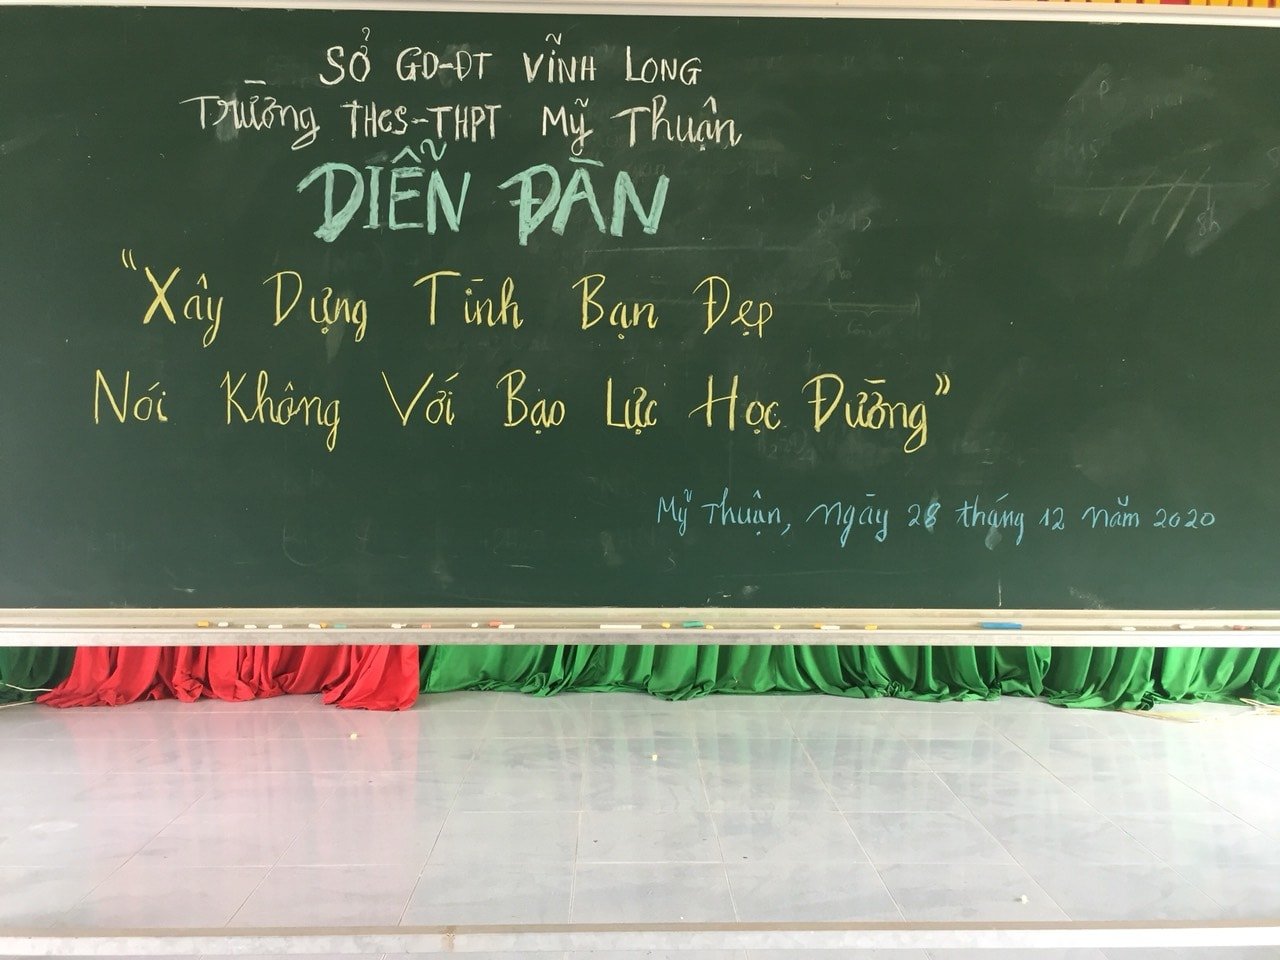 SỞ GD-ĐT VĨNH LONG
Trường THCS-THPT Mỹ Thuận
DIỄN ĐÀN
"Xây Dựng Tình Bạn Đẹp
Nói Không Với Bạo Lực Học Đường"
Mỹ Thuận, ngày 28 tháng 12 năm 2020